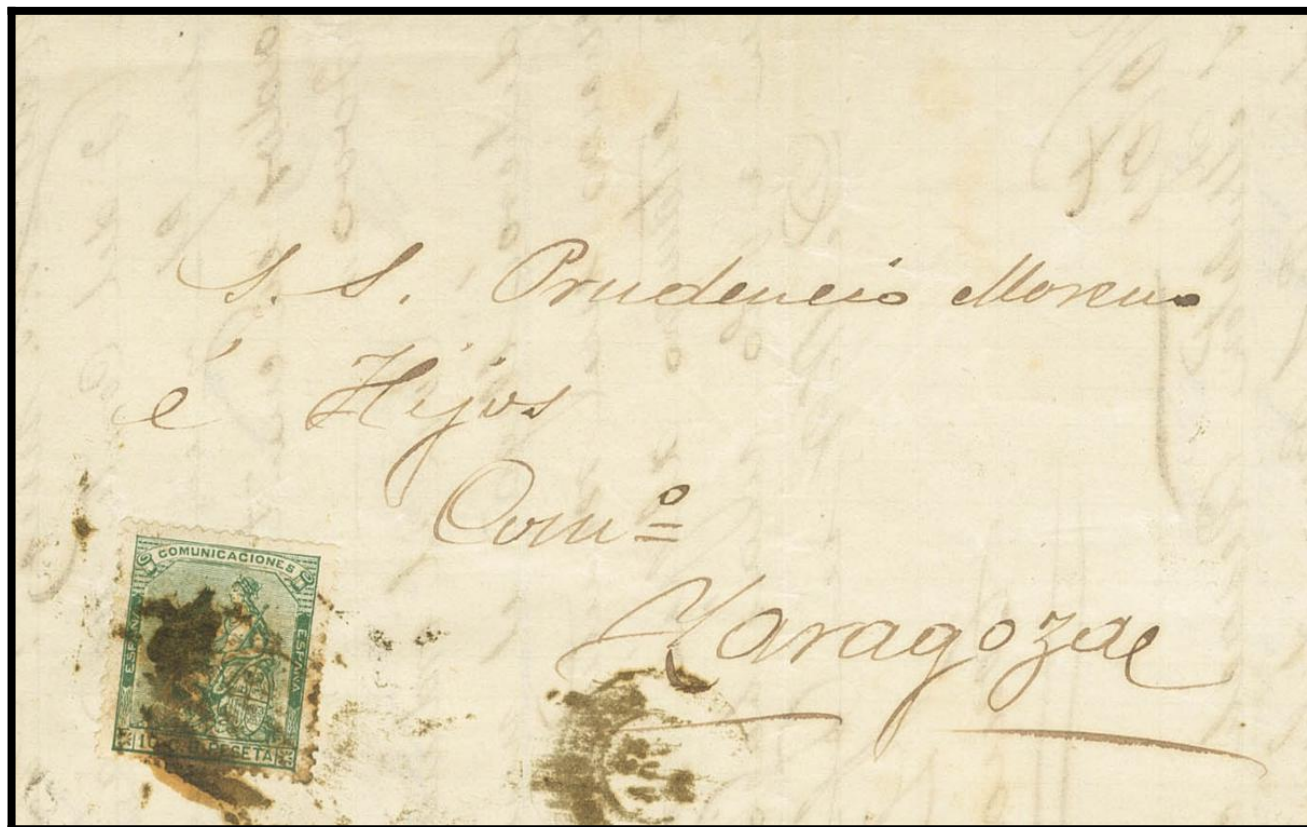 S. S. Prudencio Moreno
é Hijos
Comº
Zaragoza
COMUNICACIONES
ESPAÑA
ESPAÑA
PESETA